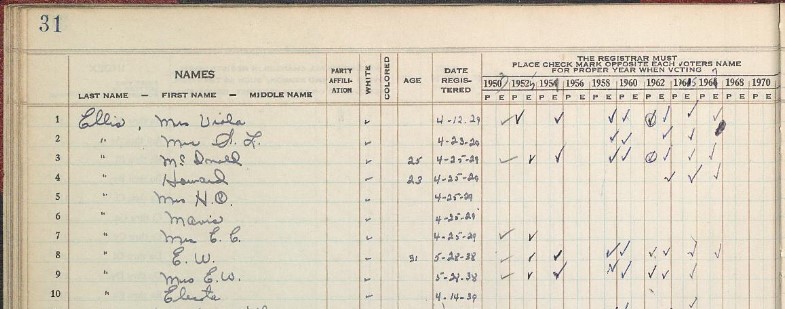 31
THE REGISTRAR MUST
PLACE CHECK MARK OPPOSITE EACH VOTERS NAME
FOR PROPER YEAR WHEN VOTING
NAMES
LAST NAME — FIRST NAME — MIDDLE NAME PARTY AFFILI- ATION WHITE COLORED AGE DATE REGIS- TERED 1950 1952 1954 1956 1958 1960 1962 1964 1966 1968 1970
P E P E P E P E P E P E P E P E P E P E P E
1 Ellis, Mrs Viola ✓ 4-12-29 ✓ ✓ ✓ ✓ ✓ ✓ ✓ ✓
2 " Mrs S. L. ✓ 4-23-29 ✓ ✓ ✓ ✓
3 " McDonald ✓ 25 4-25-29 ✓ ✓ ✓ ✓ ✓ ✓ ✓ ✓
4 " Howard ✓ 23 4-25-29 ✓ ✓ ✓
5 " Mrs H. O. ✓ 4-25-29
6 " Mavis ✓ 4-25-29
7 " Mrs C. C. ✓ 4-25-29 ✓ ✓
8 " E. W. ✓ 31 5-28-38 ✓ ✓ ✓ ✓ ✓ ✓ ✓ ✓ ✓
9 " Mrs E. W. ✓ 5-28-38 ✓ ✓ ✓ ✓ ✓ ✓ ✓ ✓
10 " Electa ✓ 4-14-39 ✓